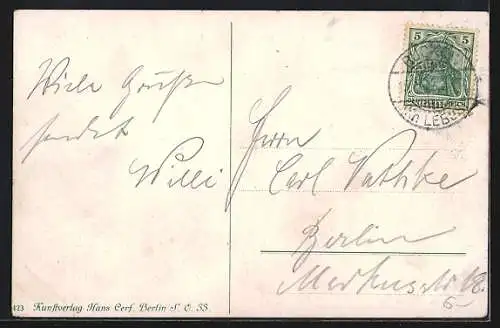 Viele Grüße
sendet
Willi
Herrn
Carl Vathke
Berlin
Markusstr 18.
6
5 5
LEBUS
423 Kunstverlag Hans Cerf, Berlin S. O. 33.